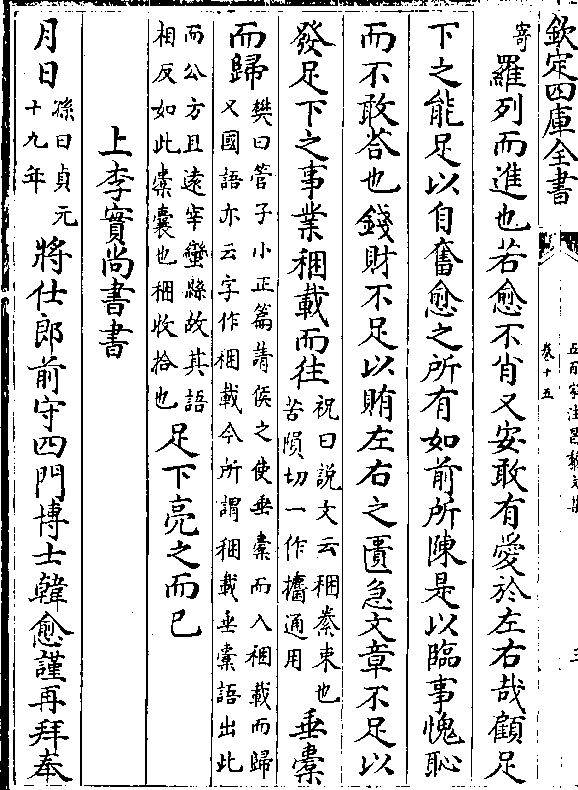 欽定四庫全書
卷十五
寄羅列而進也若愈不肖又安敢有愛於左右哉顧足
下之能足以自奮愈之所有如前所陳是以臨事愧恥
而不敢荅也錢財不足以賄左右之匱急文章不足以
發足下之事業稛載而往祝曰説文云稛絭束也苦隕切一作攟通用垂橐
而歸樊曰管子小正篇諸侯之使垂橐而入稛載而歸又國語亦云字作稛載今所謂稛載垂橐語出此
而公方且遠宰蠻縣故其語相反如此橐囊也稛收拾也足下亮之而已
上李實尚書書
月日孫曰貞元十九年將仕郎前守四門博士韓愈謹再拜奉